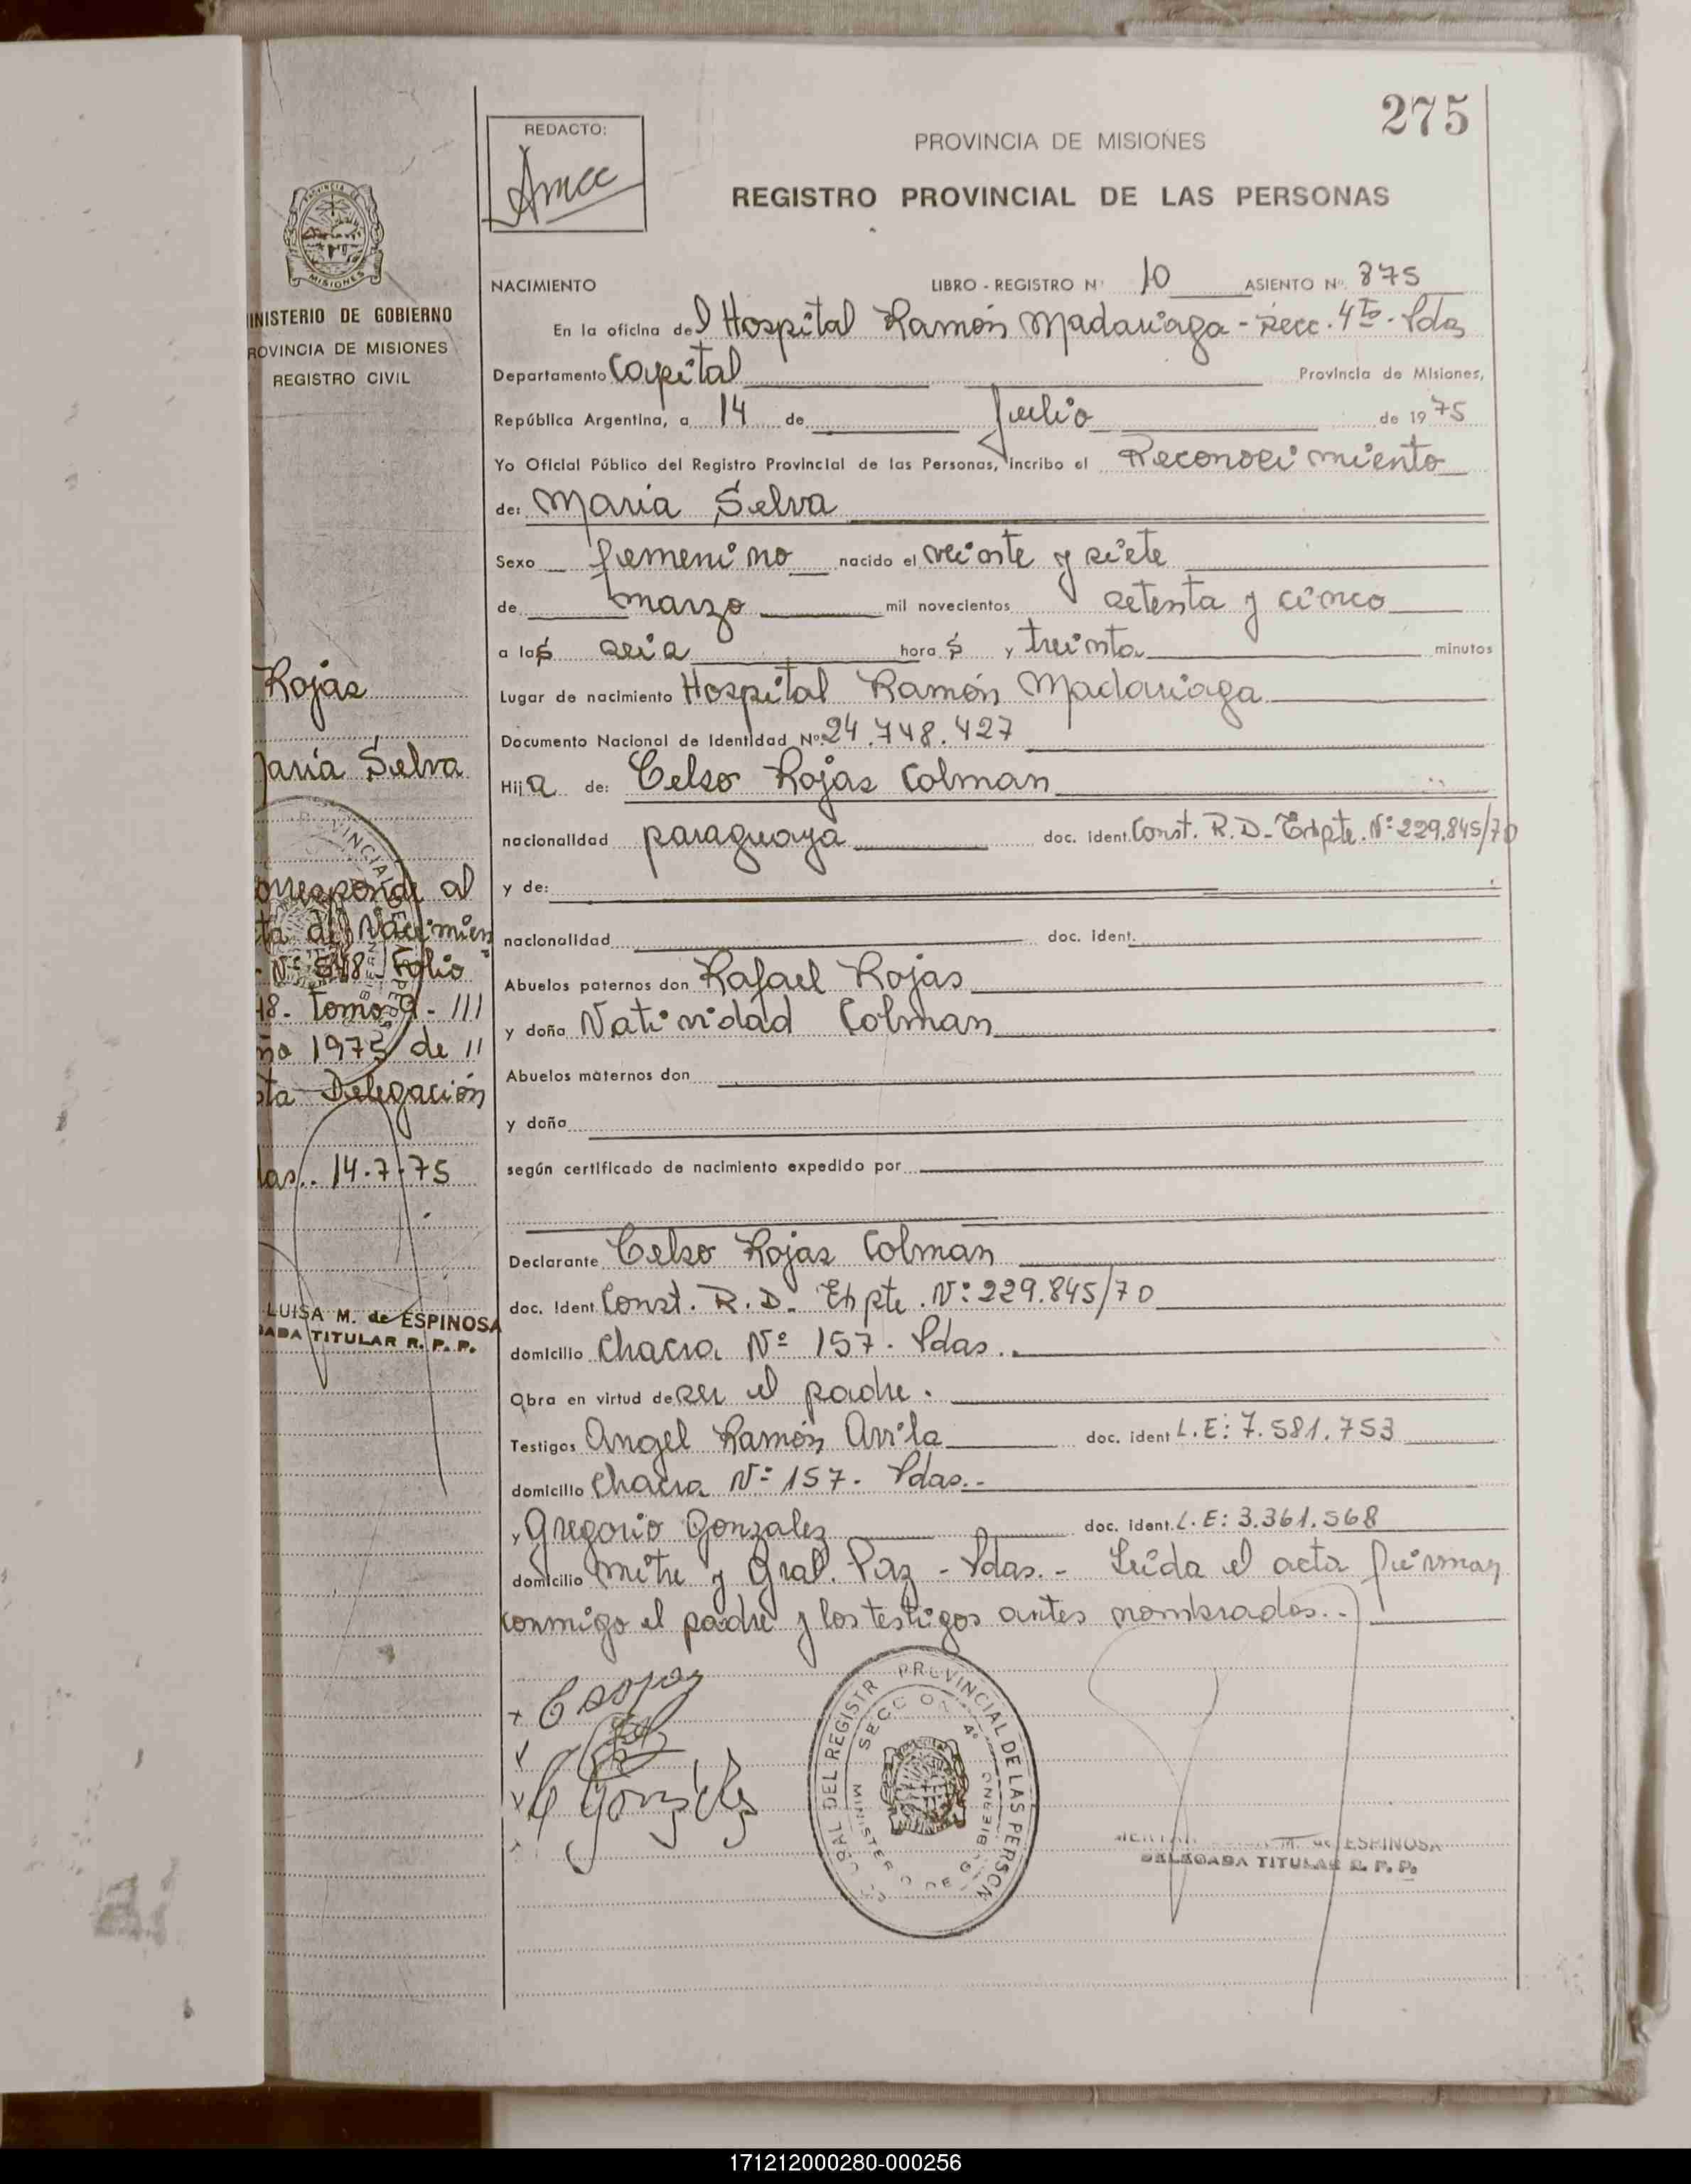 275
REDACTO:
PROVINCIA DE MISIONES
REGISTRO PROVINCIAL DE LAS PERSONAS
NACIMIENTO LIBRO - REGISTRO Nº 10 ASIENTO Nº 875
En la oficina del Hospital Ramón Madariaga - Secc. 4ta - Pdas
Departamento Capital Provincia de Misiones,
República Argentina, a 14 de Julio de 1975
Yo Oficial Público del Registro Provincial de las Personas, incribo el Reconocimiento
de: Maria Selva
Sexo femenino nacido el veinte y siete
de marzo mil novecientos setenta y cinco
a las seis horas y treinta minutos
Lugar de nacimiento Hospital Ramón Madariaga
Documento Nacional de Identidad Nº 24.748.427
Hija de: Celso Rojas Colman
nacionalidad paraguaya doc. ident. Const. R.D. - Expte. Nº 229.845/70
y de:
nacionalidad doc. ident.
Abuelos paternos don Rafael Rojas
y doña Natividad Colman
Abuelos maternos don
y doña
según certificado de nacimiento expedido por
Declarante Celso Rojas Colman
doc. Ident. Const. R.D. Expte. Nº 229.845/70
domicilio Chacra Nº 157. Pdas..
Obra en virtud de ser el padre.
Testigos Angel Ramón Avila doc. ident L.E: 7.581.753
domicilio Chacra Nº 157. Pdas.-
y Gregorio Gonzalez doc. ident. L.E: 3.361.568
domicilio Mitre y Gral. Paz - Pdas.- Leída el acta firman
conmigo el padre y los testigos antes nombrados..
PROVINCIAL DE LAS PERSON
DEL REGISTR
SECCION 4º
M. de ESPINOSA
DELEGADA TITULAR R. P. P.
MISIONES
INISTERIO DE GOBIERNO
ROVINCIA DE MISIONES
REGISTRO CIVIL
Rojas
aria Selva
orresponde al
ta de Nacimien
Nº 548 - Folio
48. tomo 9 - III
ño 1975 de II
sta Delegación
das.. 14-7-75
LUISA M. de ESPINOSA
GADA TITULAR R. P. P.
171212000280-000256